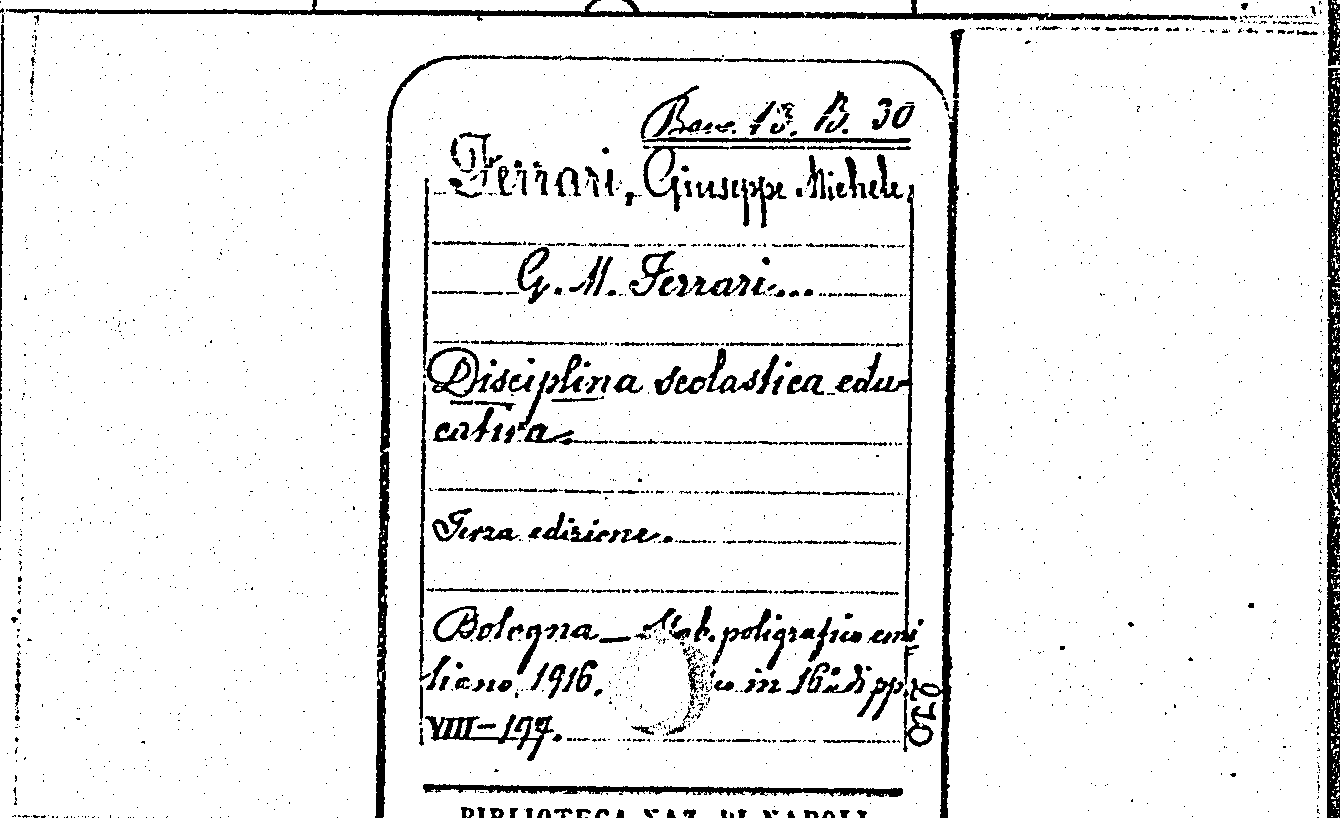 13. B. 30
Ferrari, Giuseppe Michele
G. M. Ferrari...
Disciplina scolastica edu-
cativa.
Terza edizione.
Bologna - Stab. poligrafico emi
liano, 1916. in 16° di pp.
VIII-197.
270
BIBLIOTECA NAZ. DI NAPOLI